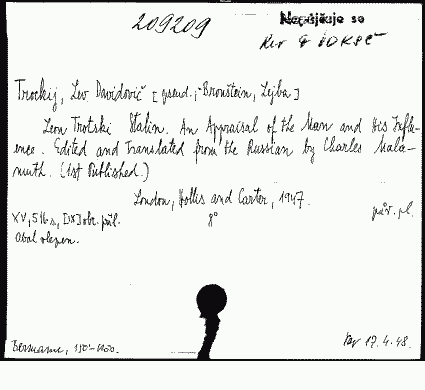 209209
Nepůjčuje se
Rev
Trockij, Lev Davidovič [pseud.; Bronštein, Lejba]
Leon Trotski Stalin. An Appraisal of the Man and His Influ-
ence. Edited and Translated from the Russian by Charles Mala-
muth. (1st Published.)
London, Hollis and Carter, 1947.
XV, 516 s, [IX] obr. příl. 8° pův. pl.
Obal olepen.
17.4.48.